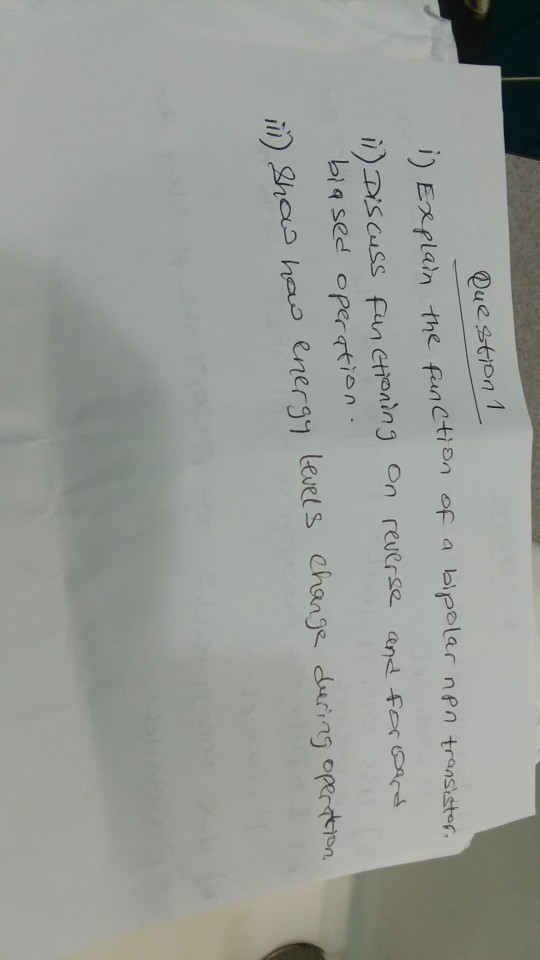 Question 1
i) Explain the function of a bipolar npn transistor.
ii) Discuss functioning on reverse and forward
biased operation.
iii) Show how energy levels change during operation.